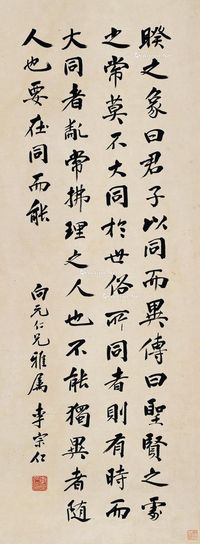 睽之象曰君子以同而異傳曰聖賢之處
之常莫不大同於世俗所同者則有時而
大同者亂常拂理之人也不能獨異者隨
人也要在同而能
向元仁兄雅属 李宗仁